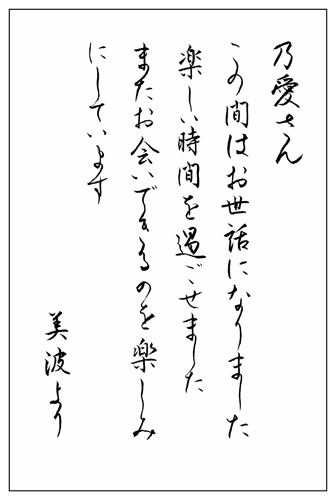 乃愛さん
この間はお世話になりました
楽しい時間を過ごせました
またお会いできるのを楽しみ
にしています
美波より